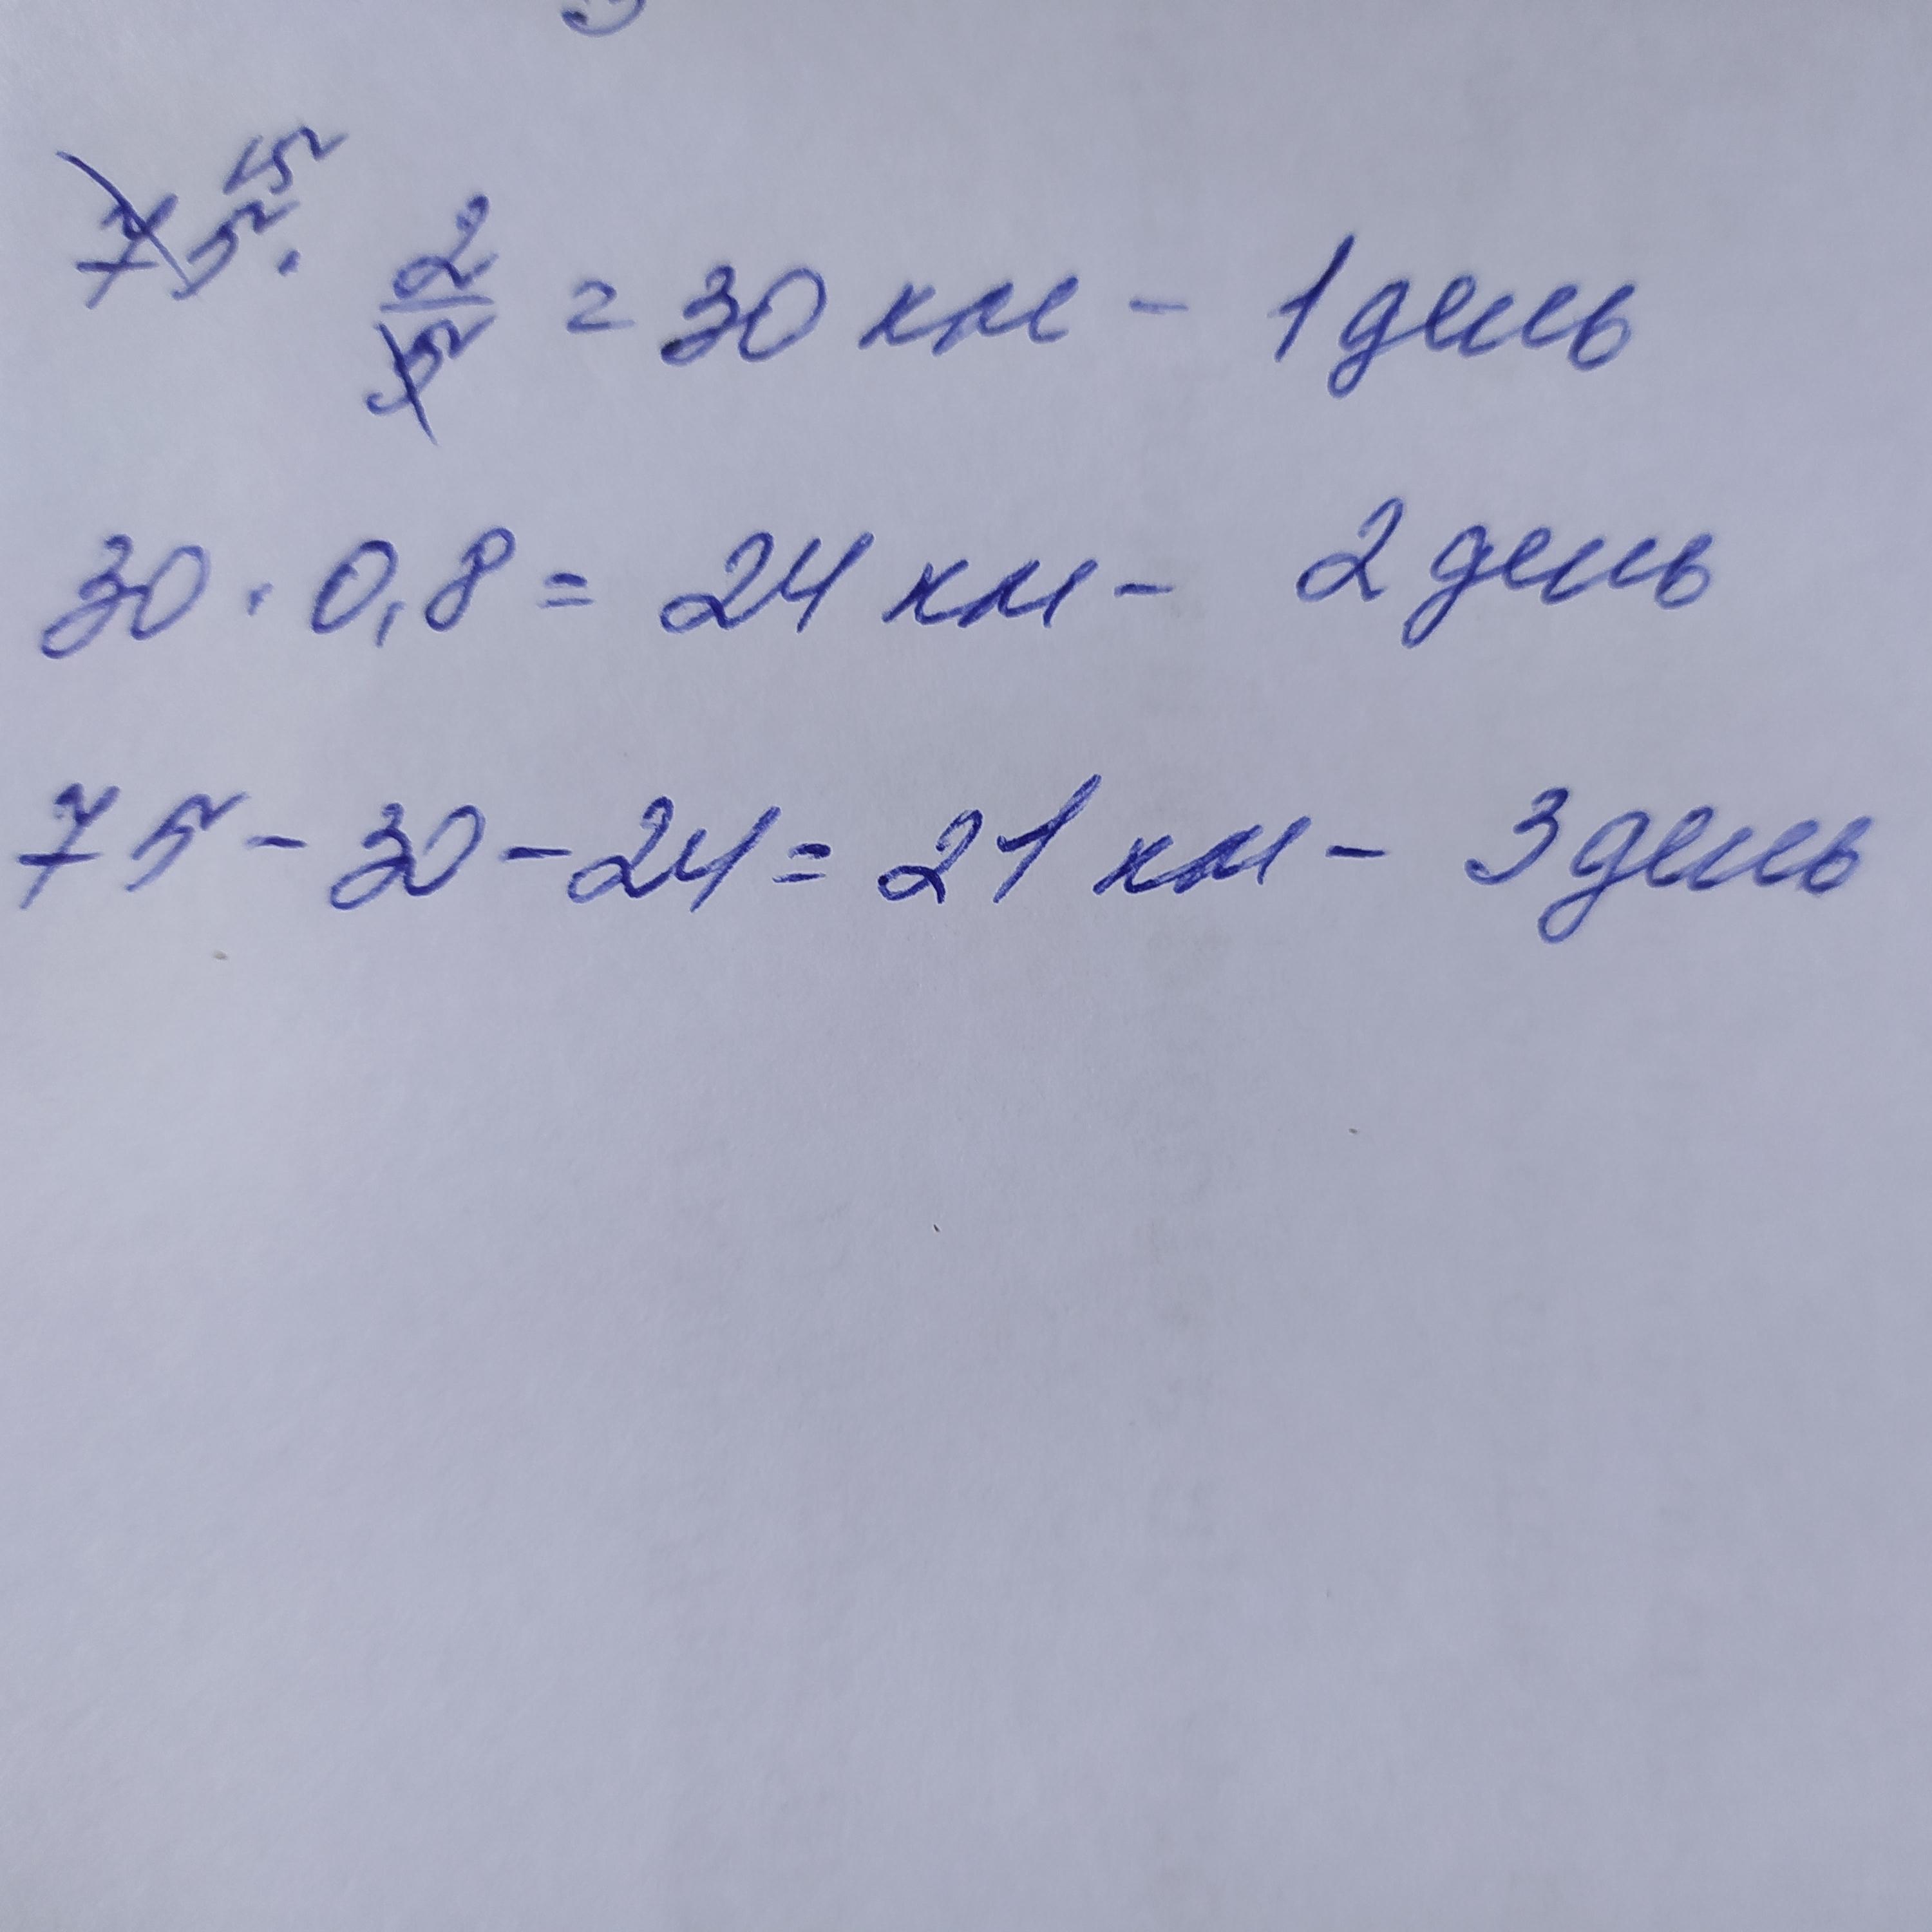 75 15 · 2/5 = 30 км - 1 день
30 · 0,8 = 24 км - 2 день
75 - 30 - 24 = 21 км - 3 день